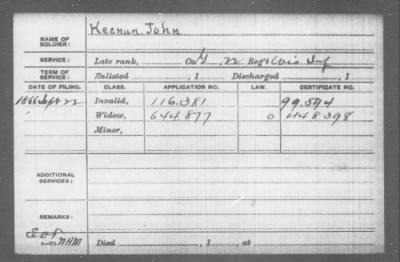 NAME OF SOLDIER: Keenan, John
SERVICE: Late rank, Co. G, 22 Reg't Wis Inf
TERM OF SERVICE: Enlisted , 1 Discharged , 1
DATE OF FILING. CLASS. APPLICATION NO. LAW. CERTIFICATE NO.
1866 Sept 22 Invalid, 116.381 99.594
Widow, 644.877 0 448398
Minor,
ADDITIONAL SERVICES:
REMARKS:
Died , 1 , at